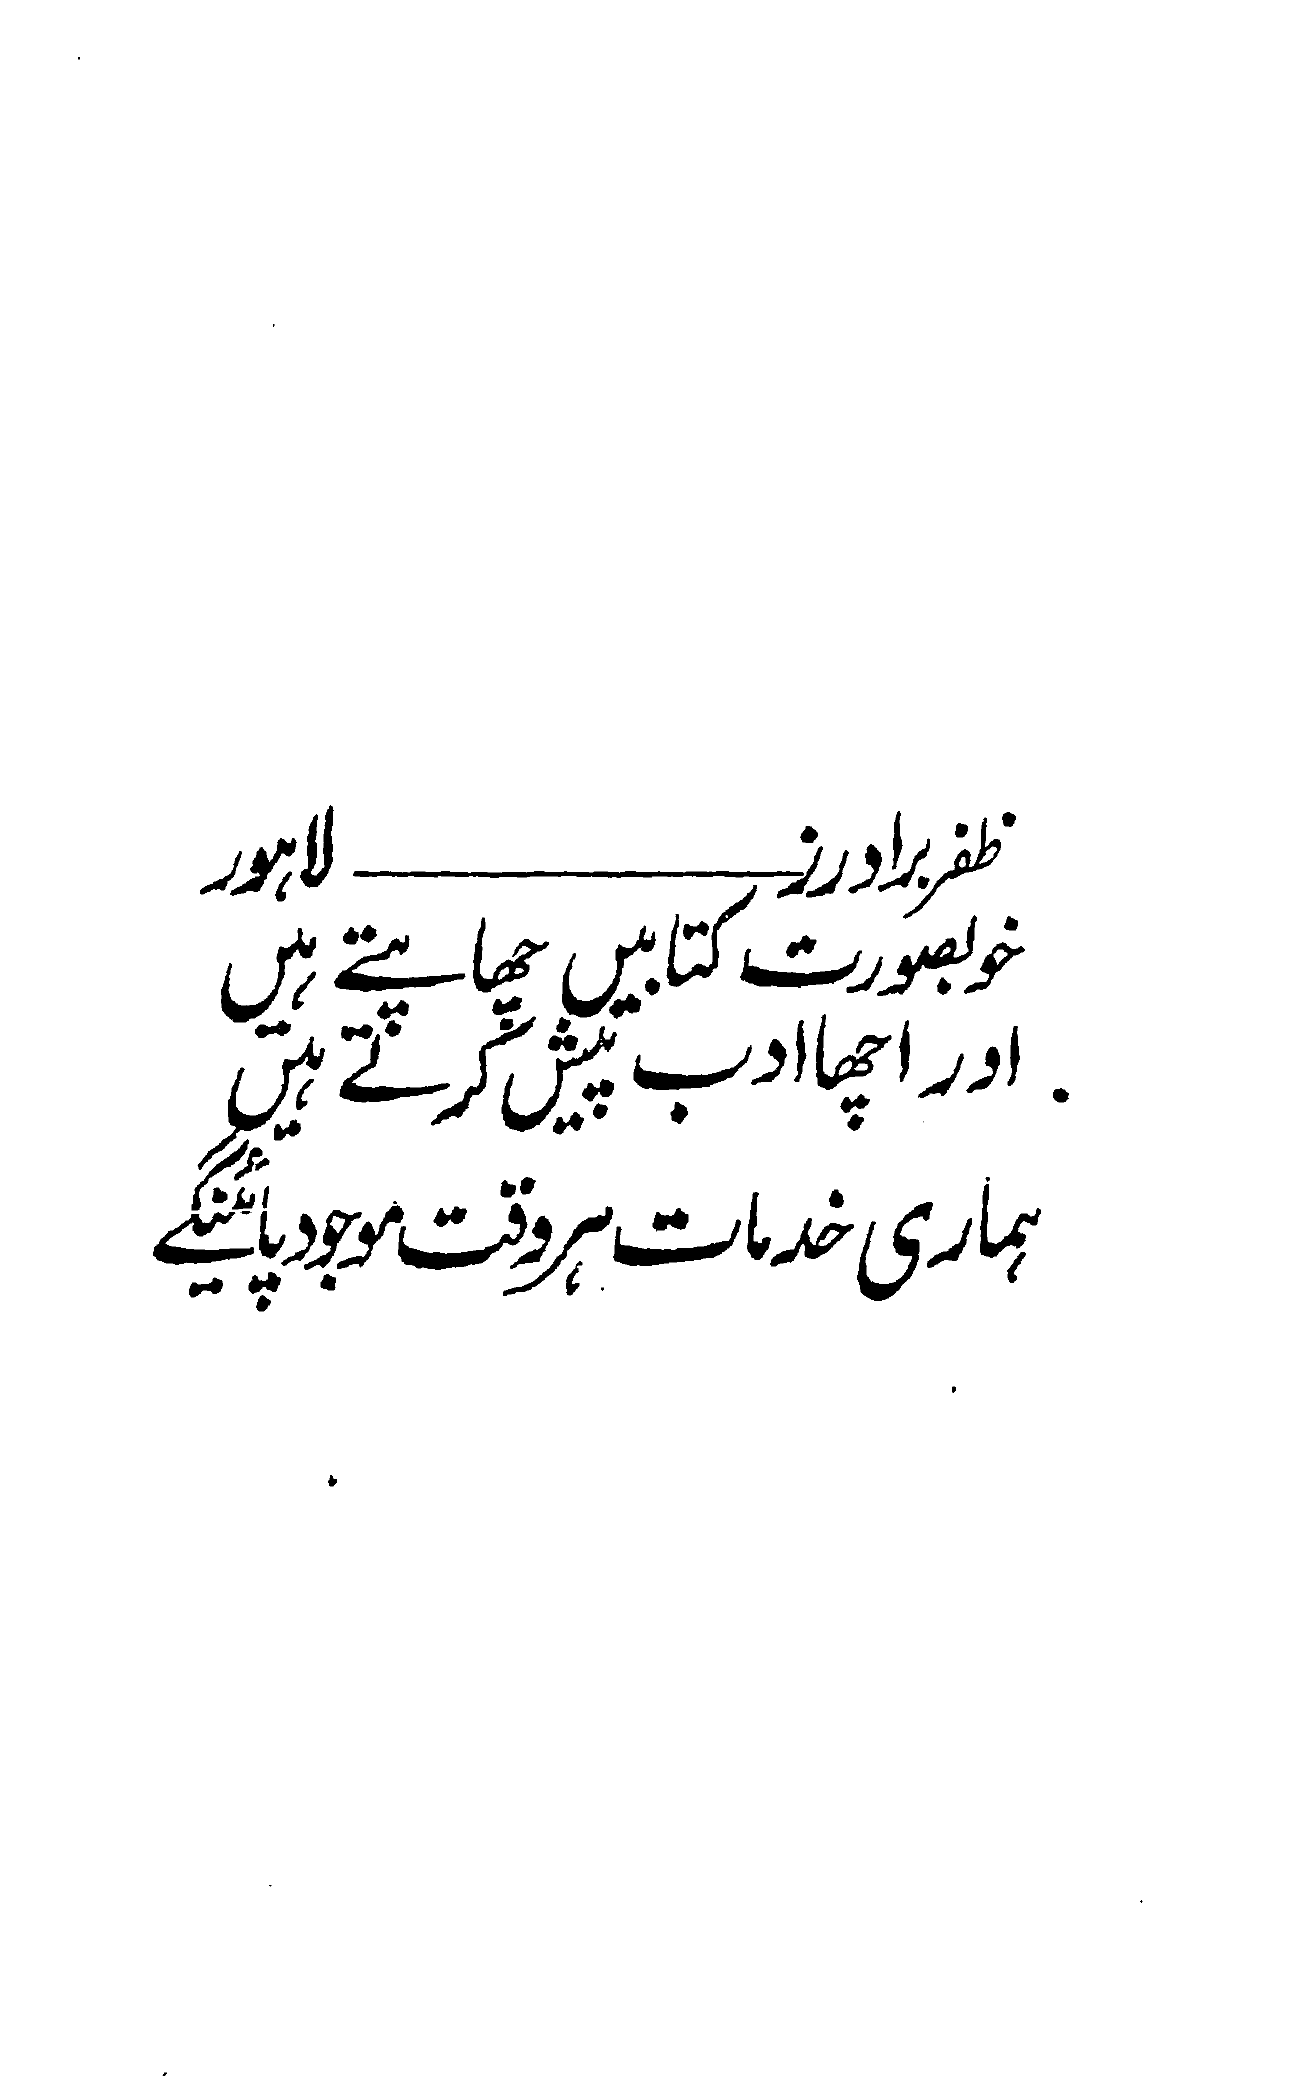 ظفر برادرز ـــــــــــــــــ لاہور
خوبصورت کتابیں چھاپتے ہیں
اور اچھا ادب پیش کرتے ہیں
ہماری خدمات ہر وقت موجود پائینگے